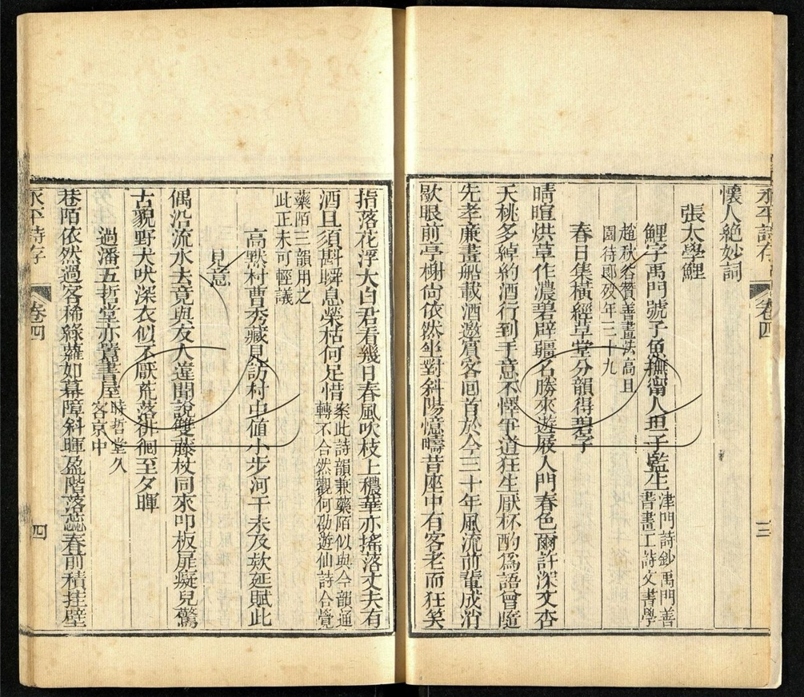 永平詩存 卷四 三
懷人絕妙詞
張太學鯉
鯉字禹門號子魚撫甯人監生津門詩鈔禹門善書畫工詩文書學
趙秋谷贊善畫法高且園待郎歿年三十九
春日集橫經草堂分韻得碧字
晴暄烘草作濃碧辟疆名勝來遊屐入門春色爾許深文杏
夭桃多綽約酒行到手意不懌爭道狂生厭杯酌爲語曾隨
先孝廉畫船載酒邀賓客回首於今三十年風流前輩成消
歇眼前亭榭尚依然坐對斜陽憶疇昔座中有客老而狂笑
指落花浮大白君看幾日春風吹枝上穠華亦搖落丈夫有
酒且須斟瞬息榮枯何足惜案此詩韻兼藥陌似與今韻通轉不合然觀何劭遊仙詩合覺
藥陌三韻用之此正未可輕議
高默村曹秀藏見訪村中値小步河干未及欵延賦此
見意
偶沿流水去竟與友人違聞說雙藤杖同來叩板扉癡兒驚
古貌野犬吠深衣似不厭荒落徘徊至夕暉
過潘五哲堂亦覽書屋時哲堂久客京中
巷陌依然過客稀綠蘿如幕障斜暉盈階落蕊春前積挂壁
永平詩存 卷四 四